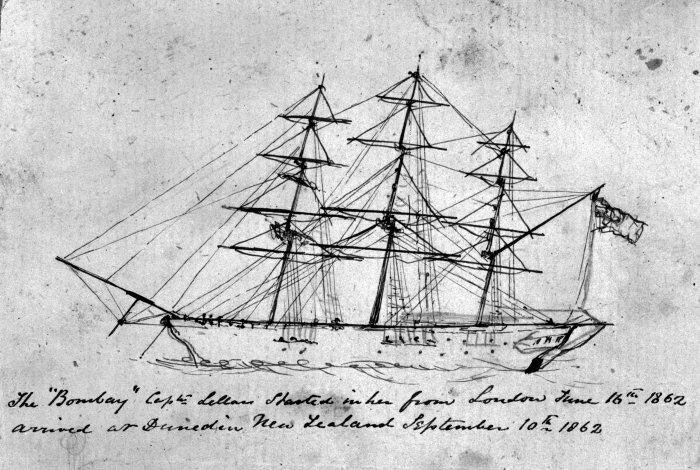 The "Bombay" Captn Sellars Started in her from London June 16th 1862
arrived at Dunedin New Zealand September 10th 1862